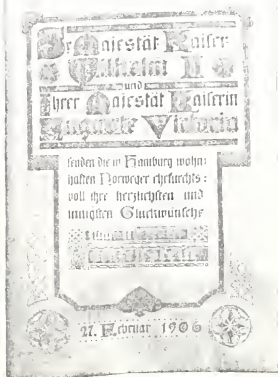 Sr Majestät Kaiser
Wilhelm II
und
Ihrer Majestät Kaiserin
Auguste Victoria
senden die in Hamburg wohn:
haften Norweger ehrfurchts:
voll ihre herzlichsten und
innigsten Glückwünsche
27. Februar 1906